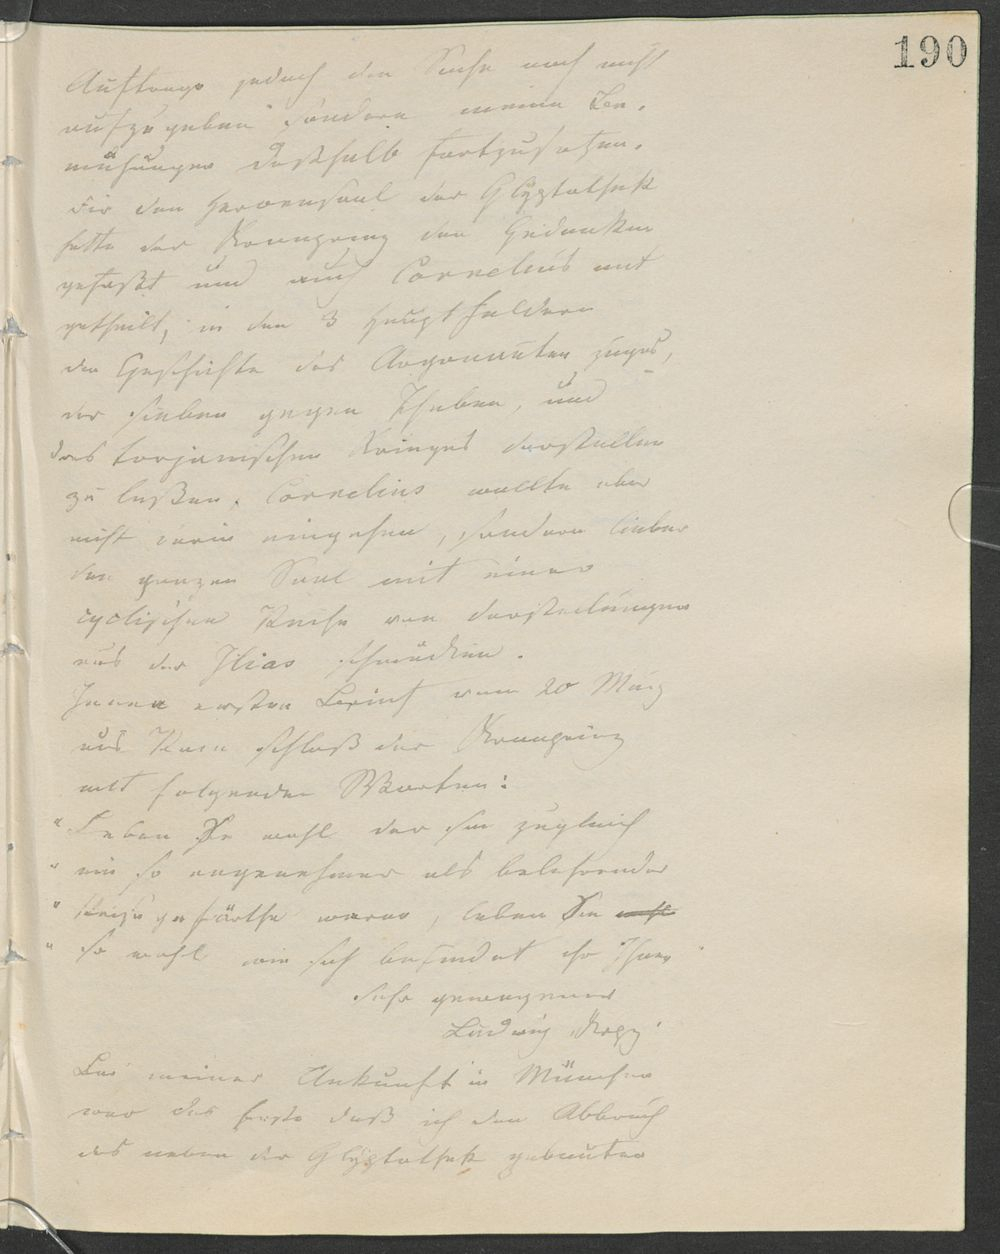 190
Auftrage jedoch die Sache noch nicht
aufzugeben sondern meine Be-
mühungen deßhalb fortzusetzen.
Für den Heroensaal der Glÿptothek
hatte der Kronprinz den Gedanken
gefaßt und auch Cornelius mit
getheilt, in den 3 Hauptfeldern
die Geschichte des Argonauten zuges,
der sieben gegen Theben, und
des torjanischen Krieges darstellen
zu laßen. Cornelius wollte aber
nicht darin eingehen, sondern lieber
den ganzen Saal mit einer
cyclischen Reihe von darstellungen
aus der Ilias schmücken.
Jenen ersten Brief vom 20 März
aus Rom schloß der Kronprinz
mit folgenden Worten:
"Leben Sie wohl der sie zugleich
"ein so angenehmer als belehrender
"Reisegefärthe waren, leben Sie
"so wohl wie sich befindet ihr Ihnen
sehr gewogener
Ludwig Krpz
Bei meiner Ankunft in München
war das erste daß ich den Abbruch
des neben der Glÿptothek gebauten